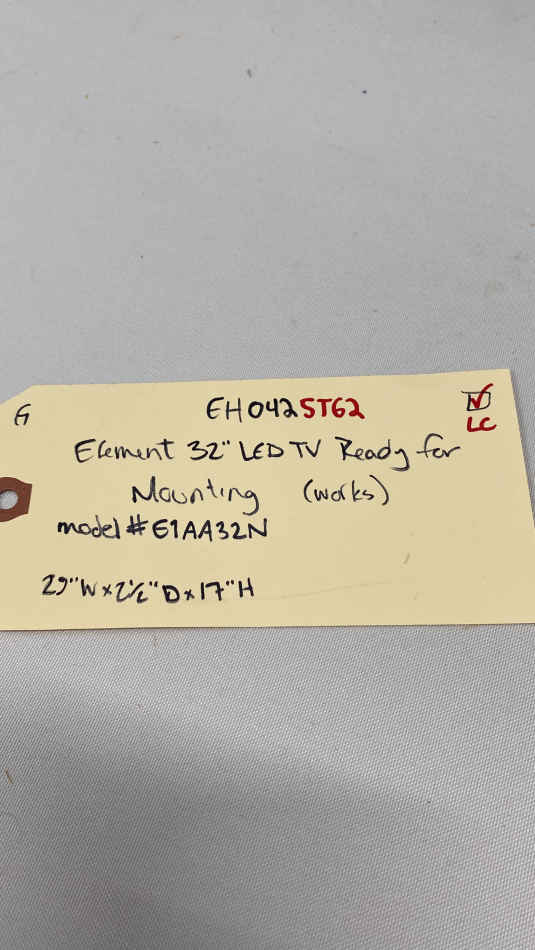 G
EH042ST62
LC
Element 32" LED TV Ready for
Mounting (works)
model # E1AA32N
29"W x 2½"D x 17"H